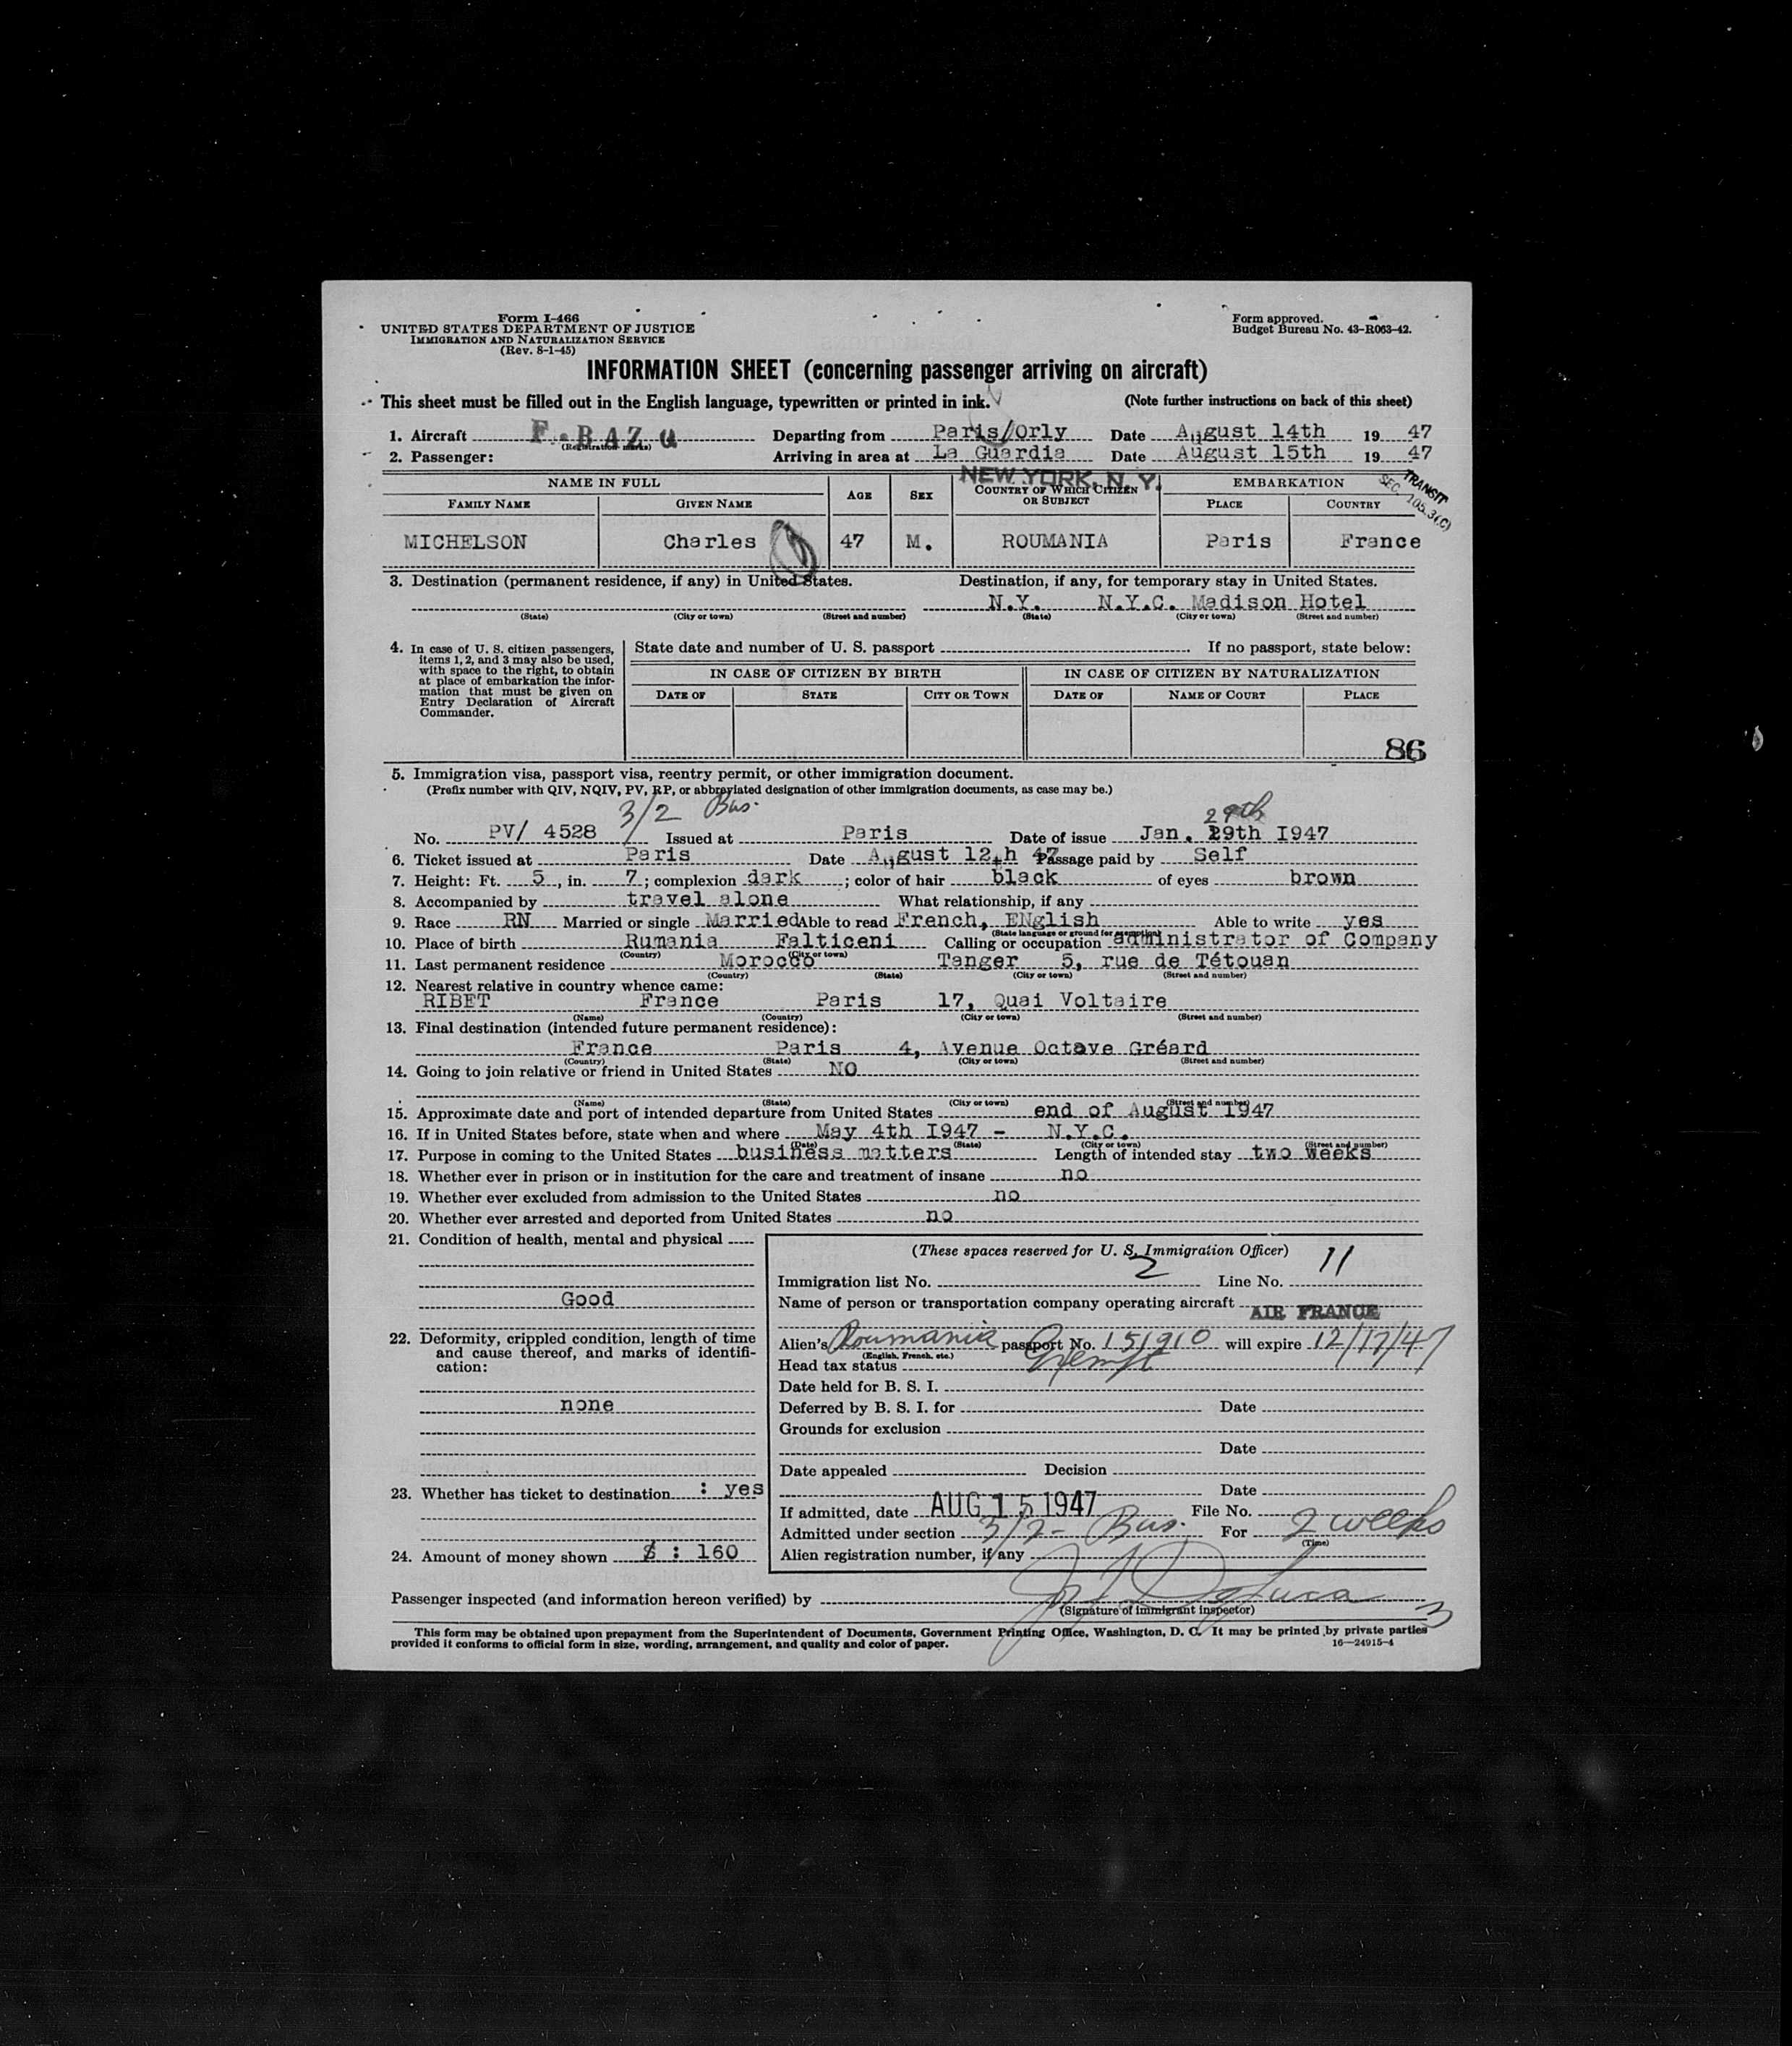 Form I-466
UNITED STATES DEPARTMENT OF JUSTICE
IMMIGRATION AND NATURALIZATION SERVICE
(Rev. 8-1-45)
Form approved.
Budget Bureau No. 43-R063-42.
INFORMATION SHEET (concerning passenger arriving on aircraft)
This sheet must be filled out in the English language, typewritten or printed in ink. (Note further instructions on back of this sheet)
1. Aircraft F.BAZ Departing from Paris/Orly Date August 14th 19 47
(Registration marks)
2. Passenger: Arriving in area at La Guardia Date August 15th 19 47
NEW YORK, N.Y.
TRANSIT
SEC. 105.3(C)
NAME IN FULL AGE SEX COUNTRY OF WHICH CITIZEN OR SUBJECT EMBARKATION
FAMILY NAME GIVEN NAME PLACE COUNTRY
MICHELSON Charles 47 M. ROUMANIA Paris France
3. Destination (permanent residence, if any) in United States. Destination, if any, for temporary stay in United States.
N.Y. N.Y.C. Madison Hotel
(State) (City or town) (Street and number) (State) (City or town) (Street and number)
4. In case of U. S. citizen passengers, items 1, 2, and 3 may also be used, with space to the right, to obtain at place of embarkation the information that must be given on Entry Declaration of Aircraft Commander.
State date and number of U. S. passport If no passport, state below:
IN CASE OF CITIZEN BY BIRTH IN CASE OF CITIZEN BY NATURALIZATION
DATE OF STATE CITY OR TOWN DATE OF NAME OF COURT PLACE
86
5. Immigration visa, passport visa, reentry permit, or other immigration document.
(Prefix number with QIV, NQIV, PV, RP, or abbreviated designation of other immigration documents, as case may be.)
3/2 Bus. 29th
No. PV/ 4528 Issued at Paris Date of issue Jan. 29th I947
6. Ticket issued at Paris Date August 12th 47 Passage paid by Self
7. Height: Ft. 5, in. 7; complexion dark; color of hair black of eyes brown
8. Accompanied by travel alone What relationship, if any
9. Race RN Married or single Married Able to read French, ENglish Able to write yes
(State language or ground for exemption)
10. Place of birth Rumania Falticeni Calling or occupation administrator of Company
(Country) (City or town)
11. Last permanent residence Morocco Tanger 5, rue de Tétouan
(Country) (State) (City or town) (Street and number)
12. Nearest relative in country whence came:
RIBET France Paris 17, Quai Voltaire
(Name) (Country) (City or town) (Street and number)
13. Final destination (intended future permanent residence):
France Paris 4, Avenue Octave Gréard
(Country) (State) (City or town) (Street and number)
14. Going to join relative or friend in United States NO
(Name) (State) (City or town) (Street and number)
15. Approximate date and port of intended departure from United States end of August 1947
16. If in United States before, state when and where May 4th I947 - N.Y.C.
(Date) (State) (City or town) (Street and number)
17. Purpose in coming to the United States business matters Length of intended stay two weeks
18. Whether ever in prison or in institution for the care and treatment of insane no
19. Whether ever excluded from admission to the United States no
20. Whether ever arrested and deported from United States no
21. Condition of health, mental and physical
Good
22. Deformity, crippled condition, length of time and cause thereof, and marks of identification:
none
23. Whether has ticket to destination : yes
24. Amount of money shown $ : 160
(These spaces reserved for U. S. Immigration Officer)
Immigration list No. 2 Line No. 11
Name of person or transportation company operating aircraft AIR FRANCE
Alien's Roumania passport No. 151910 will expire 12/17/47
(English, French, etc.)
Head tax status Exempt
Date held for B. S. I.
Deferred by B. S. I. for Date
Grounds for exclusion
Date
Date appealed Decision
Date
If admitted, date AUG 15 1947 File No.
Admitted under section 3/2- Bus. For 2 weeks
(Time)
Alien registration number, if any
Passenger inspected (and information hereon verified) by
(Signature of immigrant inspector) 3
This form may be obtained upon prepayment from the Superintendent of Documents, Government Printing Office, Washington, D. C. It may be printed by private parties
provided it conforms to official form in size, wording, arrangement, and quality and color of paper. 16—24915-4